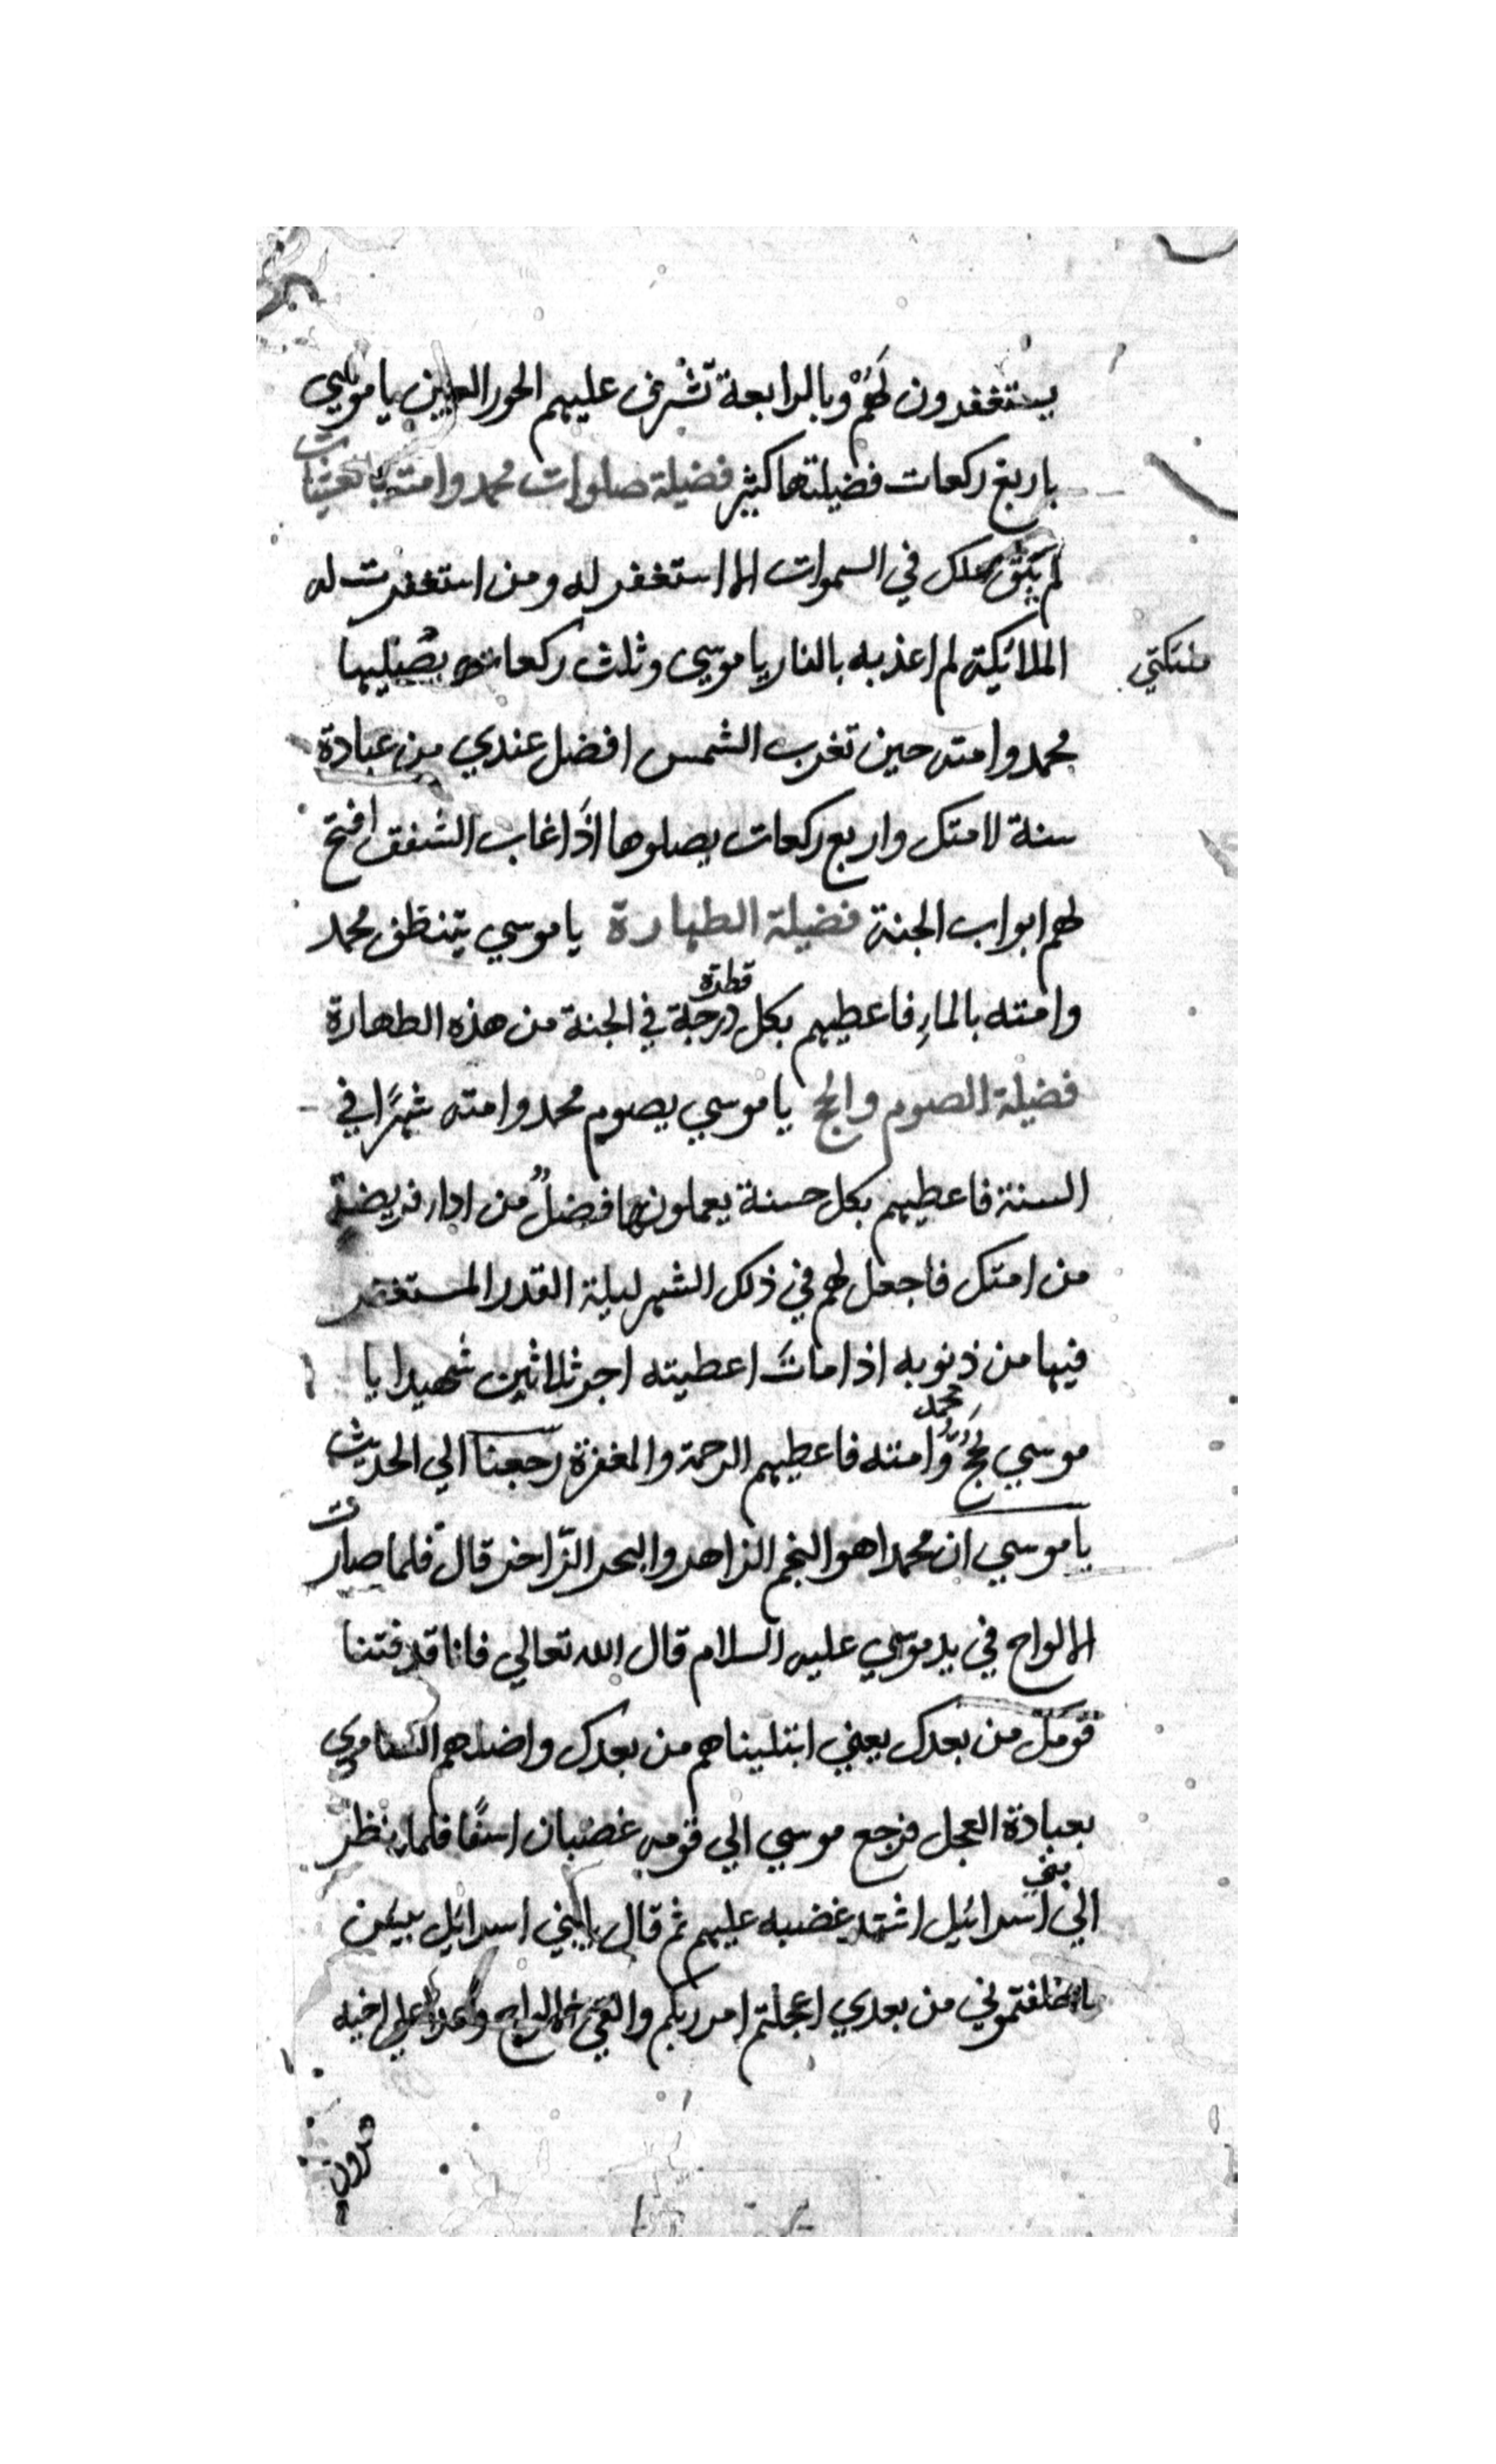 يستغفرون لَهُمْ وبالرابعة تَشْرف عليهم الحور العين يا موسي
باربع ركعات فضيلتها كثير فضيلة صلوات محمد وامته
لم يَبْقَ ملك في السموات الا استغفر له ومن استغفرت له
الملائيكة لم اعذبه بالنار يا موسي وثلث ركعات يصليها
ملئكتي
محمد وامته حين تغرب الشمس افضل عندي من عبادة
سنة لامتك واربع ركعات يصلوها اذا غاب الشفق افتح
لهم ابواب الجنة فضيلة الطهارة يا موسي يتنظف محمد
وامته بالماءِ فاعطيهم بكل قطرة درجة في الجنة من هذه الطهارة
فضيلة الصوم والحج يا موسي يصوم محمد وامته شهرًا في
السنة فاعطيهم بكل حسنة يعملونها افضلُ من اداء فريضة
من امتك فاجعل لهم في ذلك الشهر ليلة القدر المستغفر
فيها من ذنوبه اذا ماتَ اعطيته اجر ثلاثين شهيدا يا
موسي يَحُجُّ محمد وامته فاعطيهم الرحمة والمغفرة رجعنا الي الحديث
يا موسي ان محمدا هو النجم الزاهر والبحر الزّاخر قال فلما صارت
الالواح في يد موسي عليه السلام قال الله تعالي فانا قد فتنا
قومك من بعدك يعني ابتليناهم من بعدك واضلهم السامري
بعبادة العجل فرجع موسي الي قومه غضبان اسفًا فلما نظر
الي بني اسرائيل اشتد غضبه عليهم ثم قال يا بني اسرائيل بيئس
ما خلفتموني من بعدي اعجلتم امر ربكم والقي الالواح وعدا علي اخيه
هرون